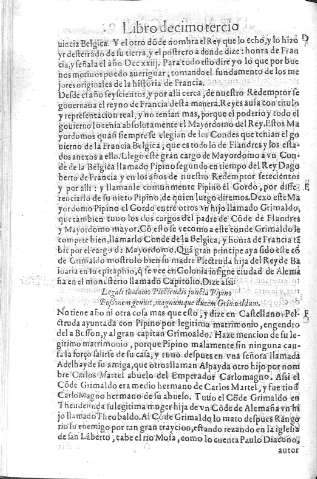 Libro decimotercio
uincia Belgica. Y el otro dõde nombra el Rey que lo echo, y lo hizo
yr desterrado de su tierra, y el postrero a donde dize: honra de Fran
cia, y señala el año Dccxiiij. Para todo esto diré yo lo que por bue
nos motiuos puedo aueriguar, tomando el fundamento de los me
jores originales de la historia de Francia.
Desde el año seyscientos, y por alli cerca, de nuestro Redemptor se
gouernaua el reyno de Francia desta manera. Reyes auia con titulo
y representacion real, y no tenian mas, porque el poderio y todo el
gouierno lo tenia absolutamente el Mayordomo del Rey. Estos Ma
yordomos quasi siempre se elegian de los Condes que tenian el go
uierno de la Francia Belgica, que es todo lo de Flandres y los esta-
dos anexos a ello. Llego este gran cargo de Mayordomo a vn Con-
de de la Belgica llamado Pipino segundo en tiempo del Rey Dago
berto de Francia y en los años de nuestro Redemptor setecientos
y por alli: y llamanle comunmente Pipino el Gordo, por dife-
renciarlo de su nieto Pipino, de quien luego diremos. Dexo este Ma
yordomo Pipino el Gordo entre otros vn hijo llamado Grimaldo,
que tambien tuuo los dos cargos del padre de Cõde de Flandres
y Mayordomo mayor. Cõ esto se vee como a este conde Grimaldo le
compete bien llamarlo Conde de la Belgica, y honra de Francia tã
bien por el cargo de Mayordomo. Quã gran principe aya sido este cõ
de Grimaldo mostrolo bien su madre Plectruda hija del Rey de Ba
uaria en su epitaphio, q̃ se vee en Colonia insigne ciudad de Alema
ña en el monesterio llamado Capitolio. Dize assi:
Pipino
magnumque ducem Grimoldum.
No tiene aqui otra cosa mas que esto, y dize en Castellano. Plec
truda ayuntada con Pipino por legitimo matrimonio, engendro
del a Busson, y al gran capitan Grimoaldo. Haze mencion de su le-
gitimo matrimonio, porque Pipino malamente sin ninguna cau-
sa la forço salirse de su casa, y tuuo despues en vna señora llamada
Adelbay de su amiga, que otros llaman Alpayda otro hijo por nom
bre Carlos Martel abuelo del Emperador Carlomagno. Assi el
Cõde Grimaldo era medio hermano de Carlos Martel, y fue tio d
Carlo Magno hermano de su abuelo. Tuuo el Cõde Grimaldo en
Theudesinda su legitima muger hija de vn Cõde de Alemaña vn hi
jo llamado Theobaldo. Al Cõde Grimaldo lo mato despues Rango
rio su enemigo por tan gran traycion, estando rezando en la iglesia
de san Lãberto, cabe el rio Mosa, como lo cuenta Paulo Diacono,
autor